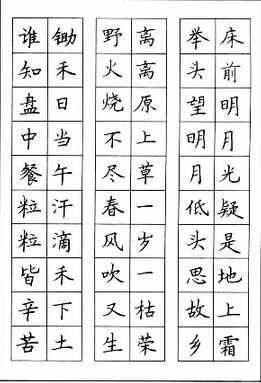 床前明月光疑是地上霜
举头望明月低头思故乡
离离原上草一岁一枯荣
野火烧不尽春风吹又生
锄禾日当午汗滴禾下土
谁知盘中餐粒粒皆辛苦